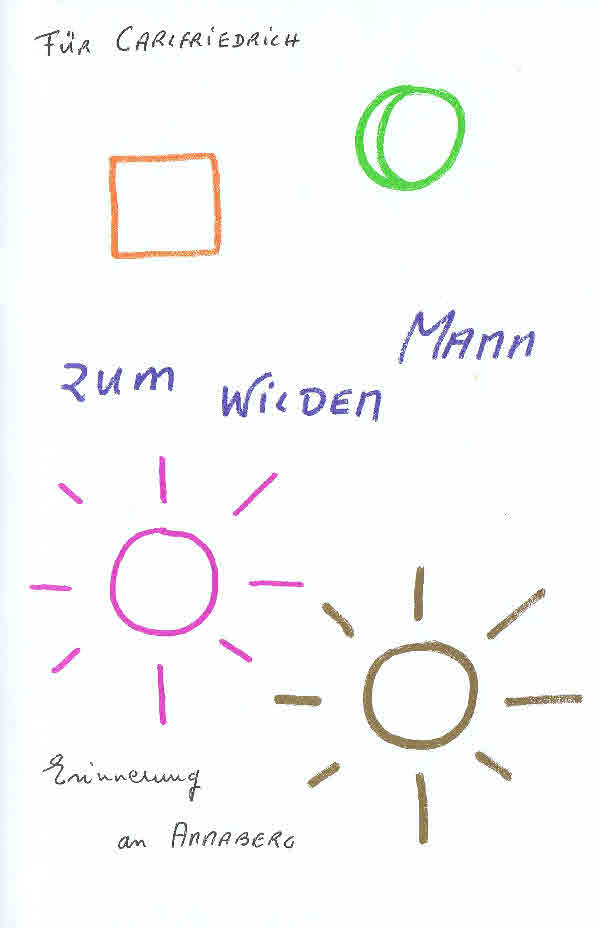 Für CARLFRIEDRICH
ZUM WILDEN MANN
Erinnerung
an ANNABERG